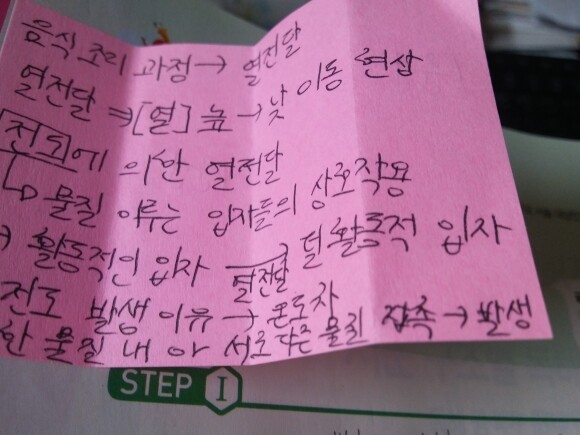 음식 조리 과정 → 열전달
열전달 ⇒ [열] 높 → 낮 이동 현상
전되에 의한 열전달
↳ 물질 이루는 입자들의 상호작용
→ 활동적인 입자 → 열전달 덜 활동적 입자
전도 발생 이유 → 온도차
한 물질 내 아 서로 다른 물질 접촉 → 발생
STEP I